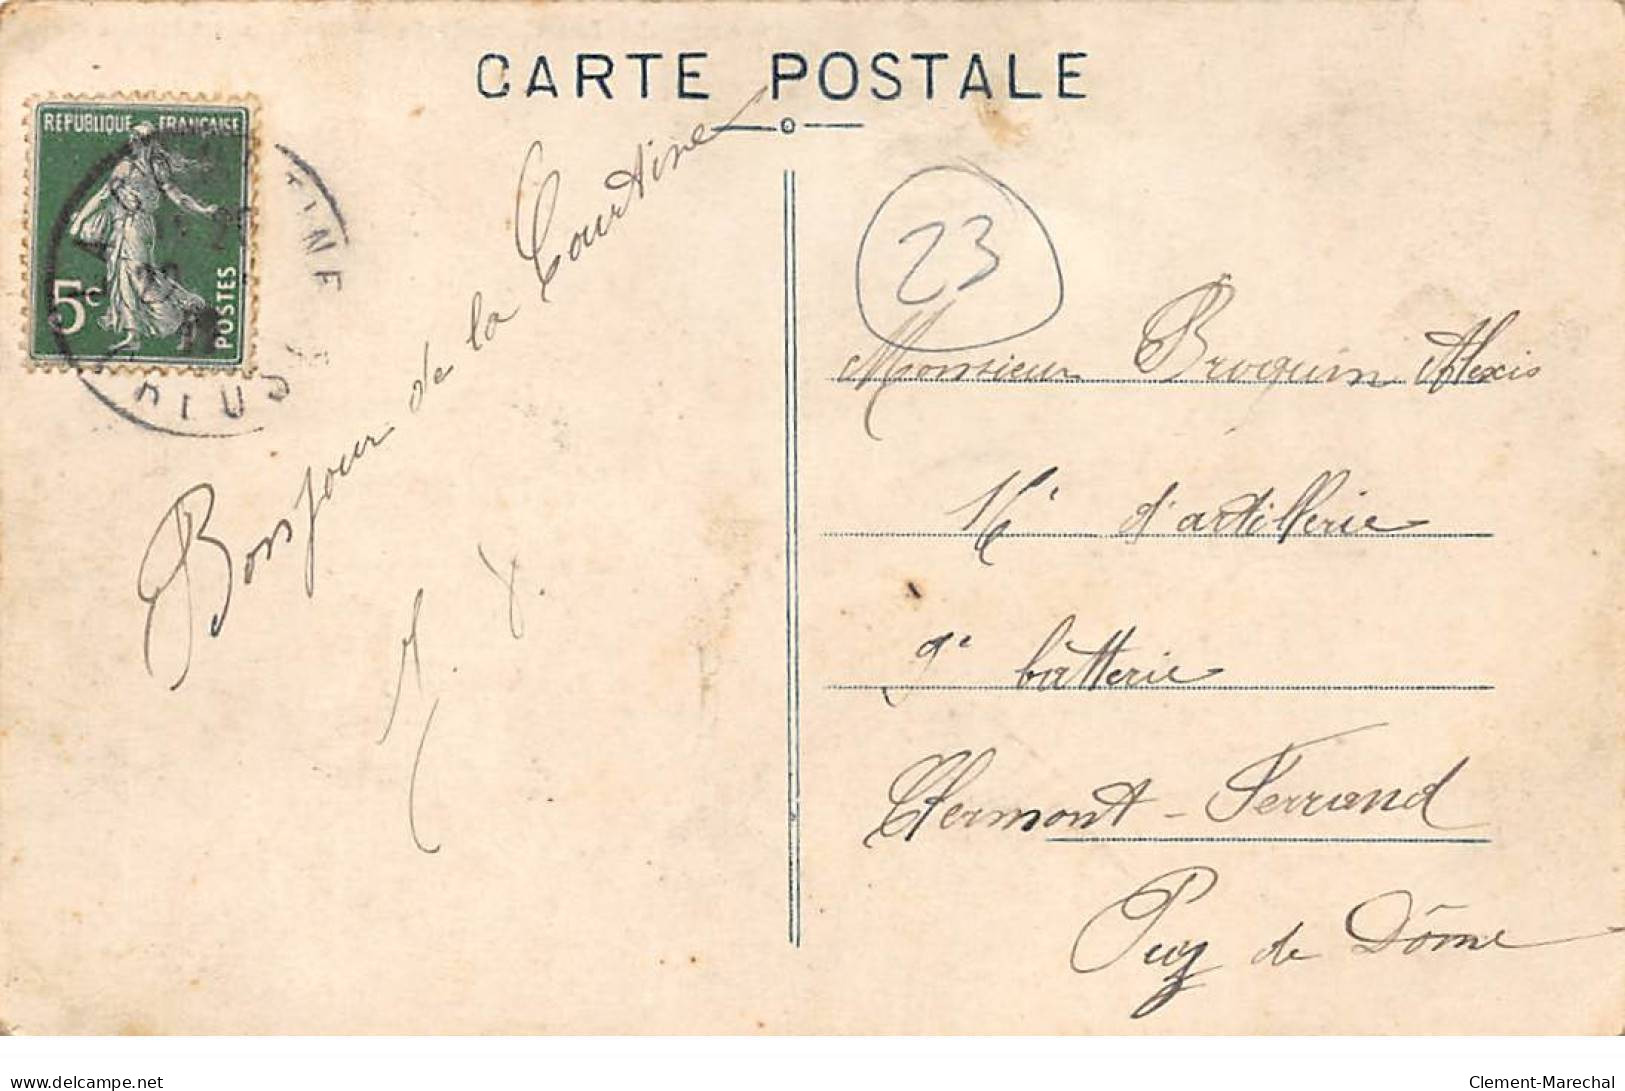 CARTE POSTALE
REPUBLIQUE FRANÇAISE
5c
POSTES
LA COURTINE
Bonjour de la Courtine
23
Monsieur Broquin Alexis
16e d'artillerie
9e bâtterie
Clermont-Ferrand
Puy de Dôme
delcampe.net
Clement-Marechal